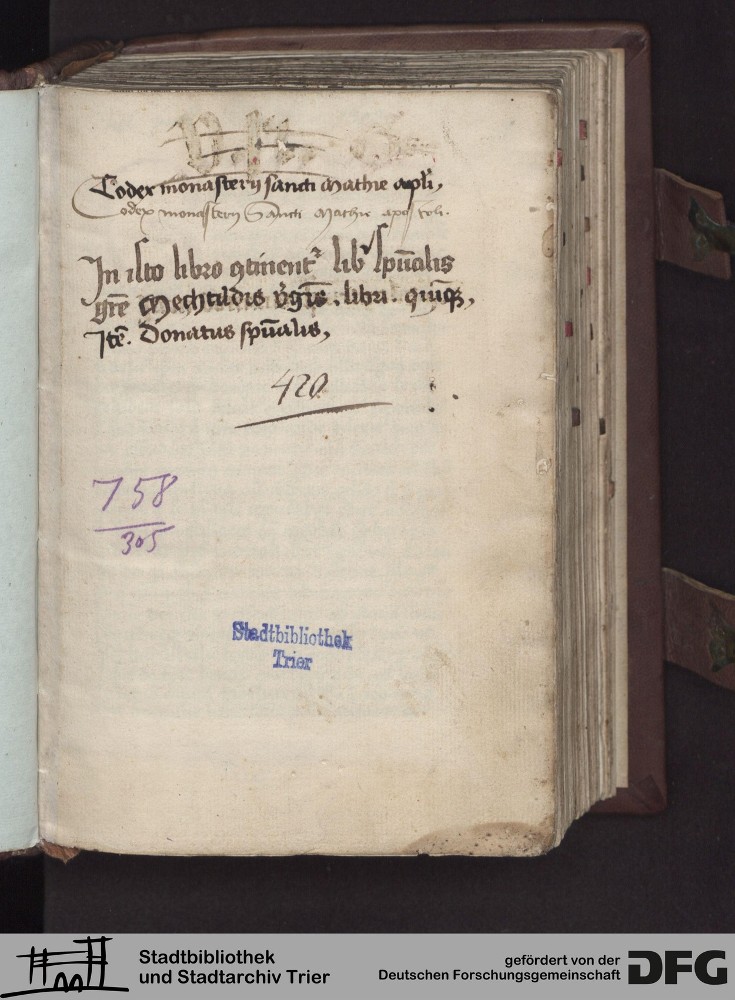 Codex monasterij sancti Mathie apl'i,
Codex monasterij Sancti Mathie apostoli.
In isto libro ꝯtinentʳ lib' sp̄ualis
gr̄e Mechtildis v̓gīs. libri. quiqꝫ,
Itē. Donatus sp̄ualis,
420
758
305
Stadtbibliothek
Trier
Stadtbibliothek
und Stadtarchiv Trier
gefördert von der
Deutschen Forschungsgemeinschaft
DFG